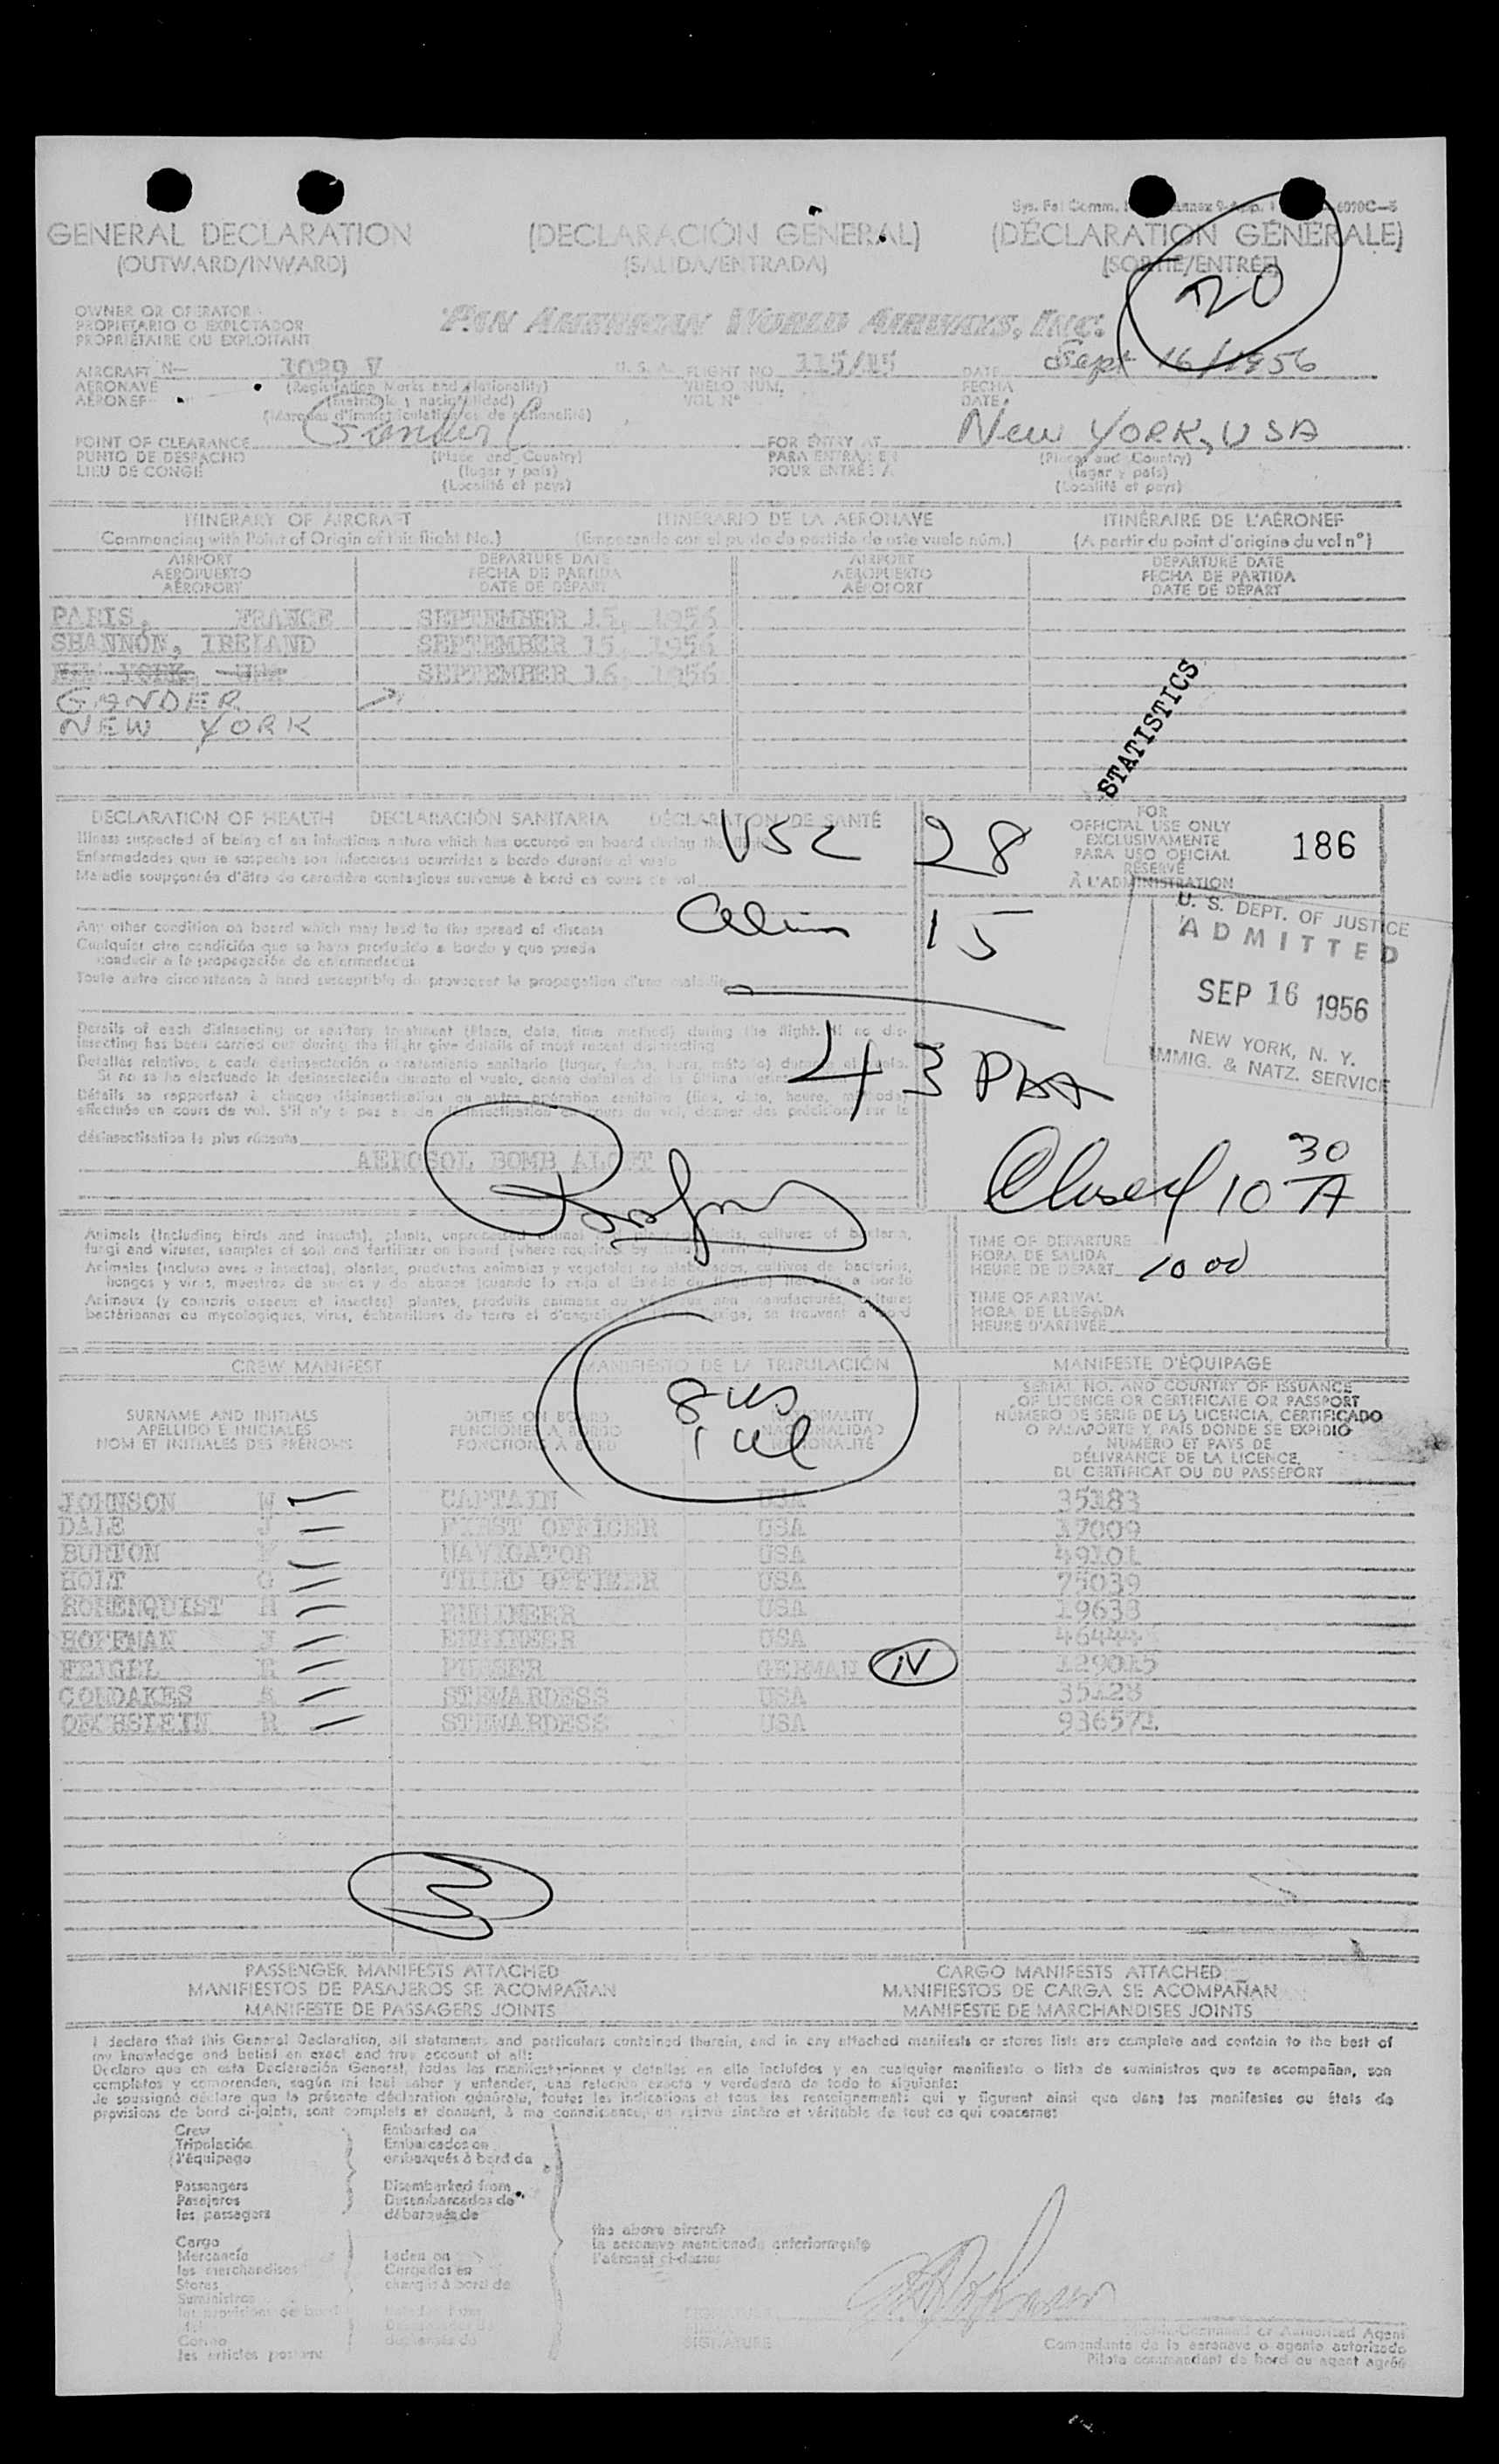 Sys. Fel Comm. Annex 9-App. 1 6090C-5
GENERAL DECLARATION (DECLARACIÓN GENERAL) (DÉCLARATION GÉNÉRALE)
(OUTWARD/INWARD) (SALIDA/ENTRADA) (SORTIE/ENTRÉE)
20
OWNER OR OPERATOR
PROPIETARIO O EXPLOTADOR
PROPRIÉTAIRE OU EXPLOITANT
PAN AMERICAN WORLD AIRWAYS, INC.
AIRCRAFT N— 1029 V U. S. A. FLIGHT NO. 115/15 DATE Sept 16/1956
AERONAVE (Registration Marks and Nationality) VUELO NUM. FECHA
AÉRONEF (Matrícula y nacionalidad) VOL Nº DATE
(Marques d'immatriculation et de nationalité)
POINT OF CLEARANCE Gander FOR ENTRY AT New YORK, USA
PUNTO DE DESPACHO (Place and Country) PARA ENTRAR EN (Place and Country)
LIEU DE CONGÉ (lugar y país) POUR ENTRÉE A (lugar y país)
(Localité et pays) (Localité et pays)
ITINERARY OF AIRCRAFT ITINERARIO DE LA AERONAVE ITINÉRAIRE DE L'AÉRONEF
Commencing with Point of Origin of this flight No.) (Empezando con el punto de partida de este vuelo núm.) (A partir du point d'origine du vol nº)
AIRPORT DEPARTURE DATE AIRPORT DEPARTURE DATE
AEROPUERTO FECHA DE PARTIDA AEROPUERTO FECHA DE PARTIDA
AÉROPORT DATE DE DÉPART AÉROPORT DATE DE DÉPART
PARIS, FRANCE SEPTEMBER 15, 1956
SHANNON, IRELAND SEPTEMBER 15, 1956
NEW YORK, USA SEPTEMBER 16, 1956
GANDER
NEW YORK
STATISTICS
DECLARATION OF HEALTH DECLARACIÓN SANITARIA DÉCLARATION DE SANTÉ
Illness suspected of being of an infectious nature which has occured on board during the
Enfermedades que se sospecha son infecciosas ocurridas a bordo durante el vuelo
Maladie soupçonnée d'être de caractère contagieux survenue à bord en cours de vol
USC 28
FOR
OFFICIAL USE ONLY
EXCLUSIVAMENTE
PARA USO OFICIAL
RÉSERVÉ
À L'ADMINISTRATION
186
Any other condition on board which may lead to the spread of disease
Cualquier otra condición que se haya producido a bordo y que pueda
conducir a la propagación de enfermedades
Toute autre circonstance à bord susceptible de provoquer la propagation d'une maladie
Alien 15
43 PAA
U. S. DEPT. OF JUSTICE
ADMITTED
SEP 16 1956
NEW YORK, N. Y.
IMMIG. & NATZ. SERVICE
Details of each disinsecting or sanitary treatment (Place, date, time method) during the flight. If no dis-
insecting has been carried out during the flight give details of most recent disinsecting
Detalles relativo, a cada desinsectación o tratamiento sanitario (lugar, fecha, hora, método) durante el vuelo.
Si no se ha efectuado la desinsectación durante el vuelo, dense detalles de la última
Détails se rapportant à chaque désinsectisation ou autre opération sanitaire (lieu, date, heure, méthode)
effectuée en cours de vol. S'il n'y a pas eu de désinsectisation en cours de vol, donner des précisions sur la
désinsectisation la plus récente
AEROSOL BOMB ALOFT
Closed 10 30 A
Animals (including birds and insects), plants,
fungi and viruses, samples of soil and fertilizer on board (where required by
Animales (incluso aves e insectos), plantas, productos animales y vegetales no elaborados, cultivos de bacterias,
hongos y virus, muestras de suelos y de abonos (cuando lo exija el
Animaux (y compris oiseaux et insectes) plantes, produits animaux ou
bactériennes ou mycologiques, virus, échantillons de terre et d'engrais se trouvent à bord
TIME OF DEPARTURE
HORA DE SALIDA
HEURE DE DÉPART 1000
TIME OF ARRIVAL
HORA DE LLEGADA
HEURE D'ARRIVÉE
CREW MANIFEST MANIFIESTO DE LA TRIPULACIÓN MANIFESTE D'ÉQUIPAGE
8 us
1 al
SURNAME AND INITIALS
APELLIDO E INICIALES
NOM ET INITIALES DES PRÉNOMS
DUTIES ON BOARD
FUNCIONES A BORDO
FONCTIONS À BORD
NATIONALITY
NACIONALIDAD
NATIONALITÉ
SERIAL NO. AND COUNTRY OF ISSUANCE
OF LICENCE OR CERTIFICATE OR PASSPORT
NÚMERO DE SERIE DE LA LICENCIA, CERTIFICADO
O PASAPORTE Y PAÍS DONDE SE EXPIDIÓ
NUMÉRO ET PAYS DE
DÉLIVRANCE DE LA LICENCE,
DU CERTIFICAT OU DU PASSEPORT
JOHNSON W CAPTAIN USA 35183
DALE J FIRST OFFICER USA 17009
BURTON NAVIGATOR USA 49101
HOLT G THIRD OFFICER USA 75039
ROSENQUIST H ENGINEER USA 19638
HOFFMAN J ENGINEER USA
FEIGEL E PURSER GERMAN IV 129015
CONDAKES STEWARDESS USA 35128
OECHSLEIN R STEWARDESS USA 936571
3
PASSENGER MANIFESTS ATTACHED CARGO MANIFESTS ATTACHED
MANIFIESTOS DE PASAJEROS SE ACOMPAÑAN MANIFIESTOS DE CARGA SE ACOMPAÑAN
MANIFESTE DE PASSAGERS JOINTS MANIFESTE DE MARCHANDISES JOINTS
I declare that this General Declaration, all statements and particulars contained therein, and in any attached manifests or stores lists are complete and contain to the best of
my knowledge and belief an exact and true account of all:
Declaro que en esta Declaración General, todas las manifestaciones y detalles en ella incluídos y en cualquier manifiesto o lista de suministros que se acompañan, son
completos y comprenden, según mi leal saber y entender, una relación exacta y verdadera de todo lo siguiente:
Je soussigné déclare que la présente déclaration générale, toutes les indications et tous les renseignements qui y figurent ainsi que dans les manifestes ou états de
provisions de bord ci-joints, sont complets et donnent, à ma connaissance, un relevé sincère et véritable de tout ce qui concerne:
Crew Embarked on
Tripulación Embarcados en
l'équipage embarqués à bord de
Passengers Disembarked from
Pasajeros Desembarcados de
les passagers débarqués de
the above aircraft
la aeronave mencionada anteriormente
l'aéronef ci-dessus
Cargo
Mercancía Laden on
les marchandises Cargados en
Stores chargés à bord de
Suministros
les provisions de bord
Correo
les articles postaux
SIGNATURE
Pilot-in-Command or Authorized Agent
Comandante de la aeronave o agente autorizado
Pilote commandant de bord ou agent agréé